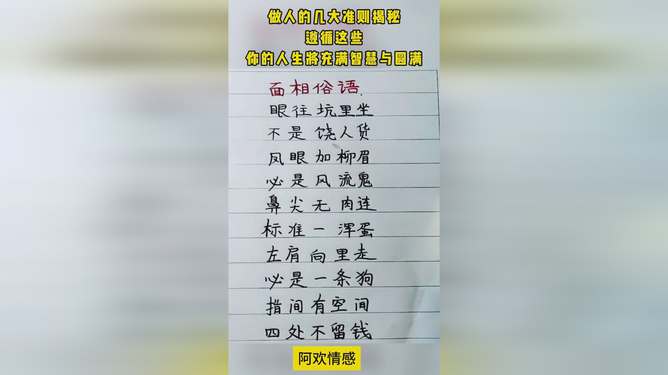 做人的几大准则揭秘
遵循这些
你的人生将充满智慧与圆满
面相俗语
眼往坑里坐
不是饶人货
凤眼加柳眉
必是风流鬼
鼻尖无肉连
标准一浑蛋
左肩向里走
必是一条狗
指间有空间
四处不留钱
阿欢情感